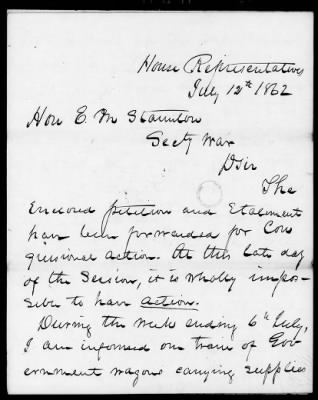 House Representatives
July 12th 1862
Hon E. M Staunton
Secty War
DSir
The
Enclosed petition and Statement
have been forwarded for Con
gressional action. At this late day
of the Session, it is wholly impos-
sible to have action.
During the week ending 6th July,
I am informed one train of Gov
ernment wagons carrying supplies